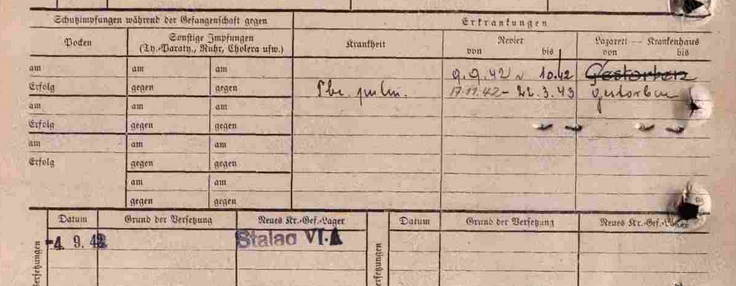 Schutzimpfungen während der Gefangenschaft gegen Erkrankungen
Pocken Sonstige Impfungen (Ty.-Paraty., Ruhr, Cholera usw.) Krankheit Revier von bis Lazarett — Krankenhaus von bis
am am am 9.9.42 10.42 Gestorben
Erfolg gegen gegen Tbc. pulm. 17.11.42 - 22.3.43 gestorben
am am am
Erfolg gegen gegen
am am am
Erfolg gegen gegen
am am
gegen gegen
Versetzungen Datum Grund der Versetzung Neues Kr.-Gef.-Lager Versetzungen Datum Grund der Versetzung Neues Kr.-Gef.-Lager
-4. 9. 42 Stalag VI A